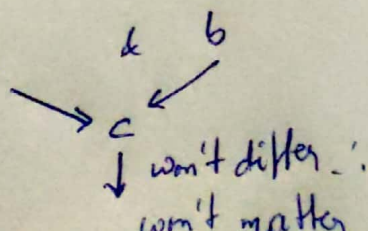 & b
c
won't differ ∴
won't matter